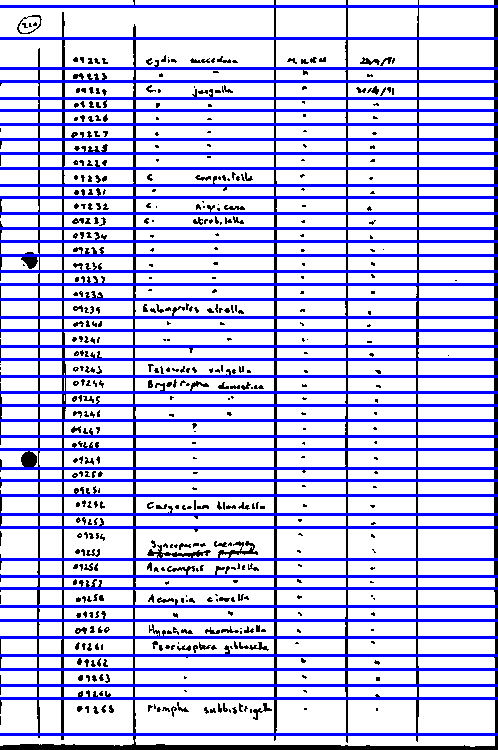 220
09222 Cydia succedana M.N.H.M 20/4/91
09223 " " " "
09224 C. jungiella " 20/4/91
09225 " " " "
09226 " " " "
09227 " " " "
09228 " " " "
09229 " " " "
09230 C compositella " "
09231 " " " "
09232 C. nigricana " "
09233 C. strobilella " "
09234 " " " "
09235 " " " "
09236 " " " "
09237 " " " "
09238 " " " "
09239 Eulamprotes atrella " "
09240 " " " "
09241 " " " "
09242 " " "
09243 Teleiodes vulgella " "
09244 Bryotropha domestica " "
09245 " " " "
09246 " " " "
09247 " " "
09248 " " "
09249 " " "
09250 " " "
09251 " " "
09252 Caryocolum blandella " "
09253 " " "
09254 " " "
09255 Syncopacma " "
09256 Anacampsis populella " "
09257 " " " "
09258 Acompsia cinerella " "
09259 " " " "
09260 Hypatima rhomboidella " "
09261 Psoricoptera gibbosella " "
09262 " " "
09263 " " "
09264 " " "
09265 Mompha subbistrigella " "